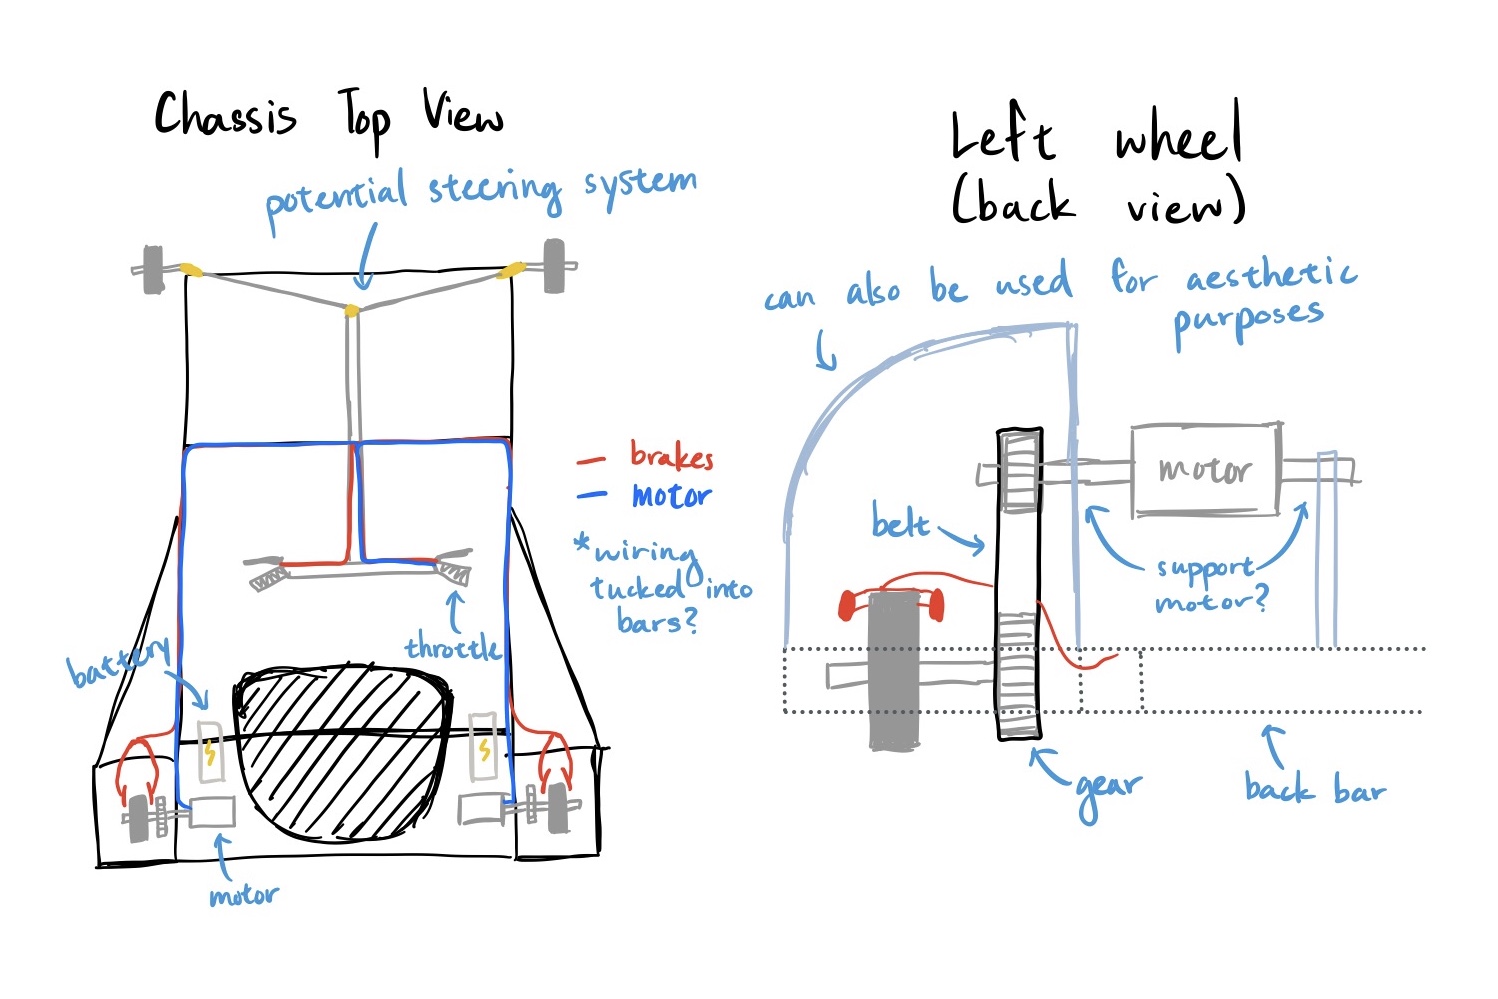 Chassis Top View
potential steering system
brakes
motor
*wiring
tucked into
bars?
throttle
battery
motor
Left wheel
(back view)
can also be used for aesthetic
purposes
motor
belt
support
motor?
gear
back bar